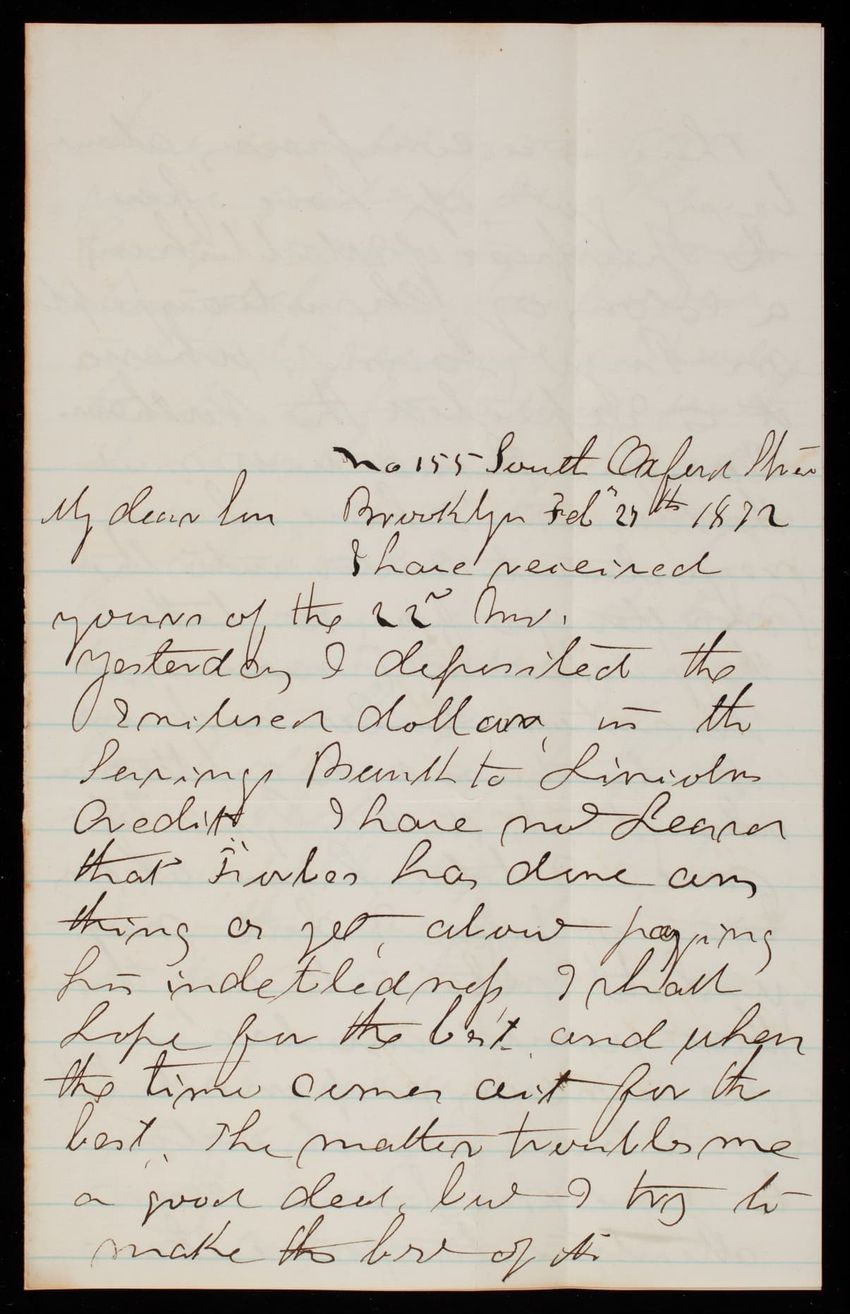 No 155 South Oxford Stree
My dear Son Brooklyn Feb 27th 1872
I have received
yours of the 22d Inst.
Yesterday I deposited the
dollars, in the
Savings Bank to Lincolns
Credit. I have not heard
that Forbes has done any
thing as yet, about paying
his indebtedness, I shall
hope for the best and when
the time comes act for the
best. The matter troubles me
a good deal, but I try to
make the best of it